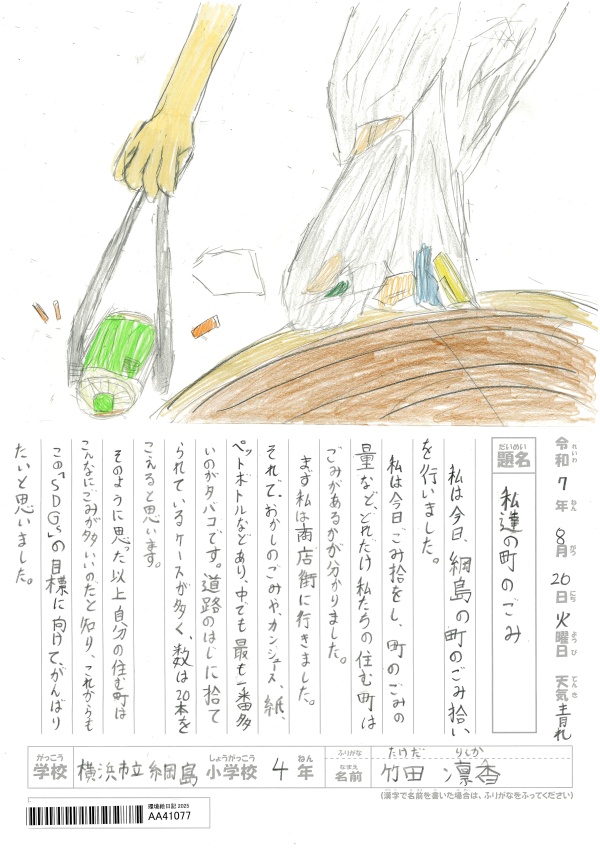 令和7年8月20日火曜日 天気 晴れ
れいわ ねん がつ にち ようび てんき
だいめい
題名 私達の町のごみ
私は今日、綱島の町のごみ拾い
を行いました。
私は今日、ごみ拾をし、町のごみの
量など、どれだけ私たちの住む町は
ごみがあるかが分かりました。
まず私は商店街に行きました。
それで、おかしのごみや、カンジュース、紙、
ペットボトルなどあり、中でも最も一番多
いのがタバコです。道路のはじに捨て
られているケースが多く、数は20本を
こえると思います。
そのように思った以上自分の住む町は
こんなにごみが多いのだと知り、これからも
この「SDGs」の目標に向けて、がんばり
たいと思いました。
がっこう しょうがっこう ねん
学校 横浜市立綱島小学校 4年
ふりがな たけだ りんか
なまえ
名前 竹田 凛香
(漢字で名前を書いた場合は、ふりがなをふってください)
環境絵日記2025
AA41077